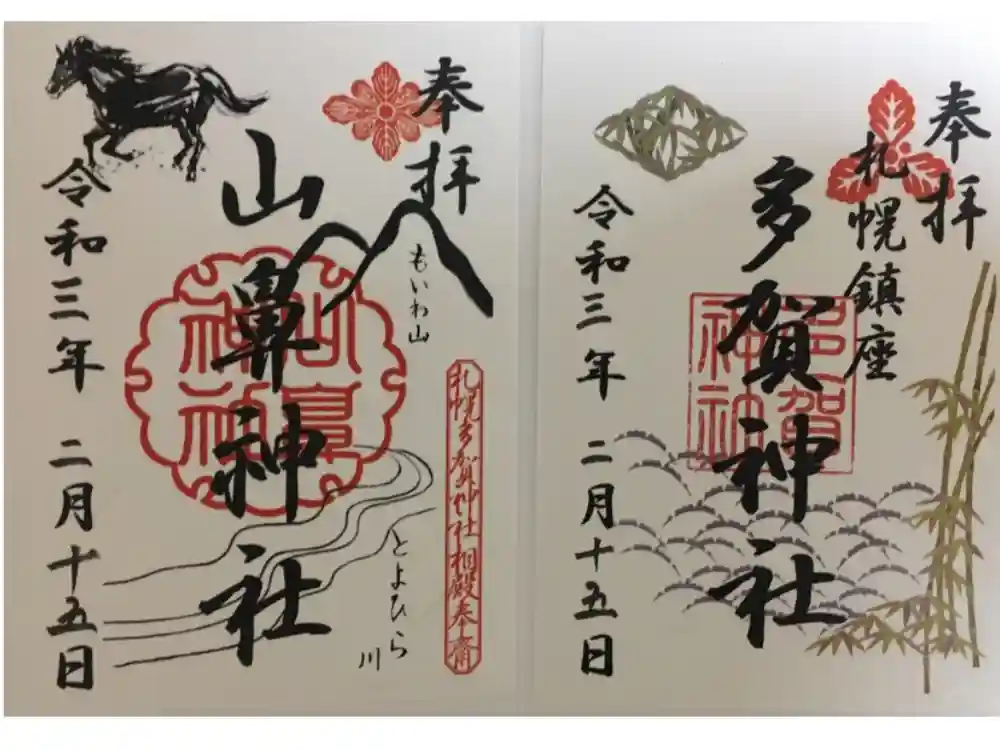 奉拝
札幌鎮座
多賀神社
多賀神社
令和三年 二月十五日
奉拝
もいわ山
山鼻神社
山鼻神社
札幌多賀神社相殿奉斎
とよひら川
令和三年 二月十五日